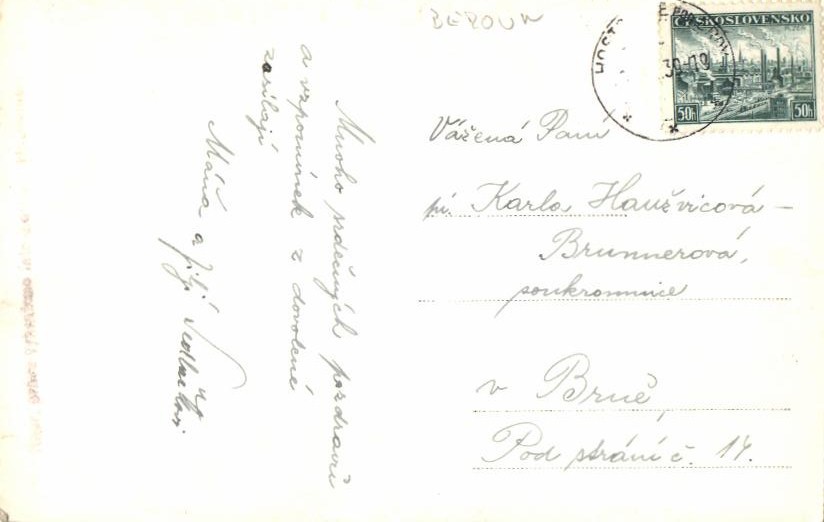 BEROUN
ČESKOSLOVENSKO
50h 50h
Mnoho srdečných pozdravů
a vzpomínek z dovolené
zasílají
Máňa a Jiljí
Vážená Paní
pí. Karla Haužvicová –
Brunnerová,
soukromnice
v Brně,
Pod strání č. 14.